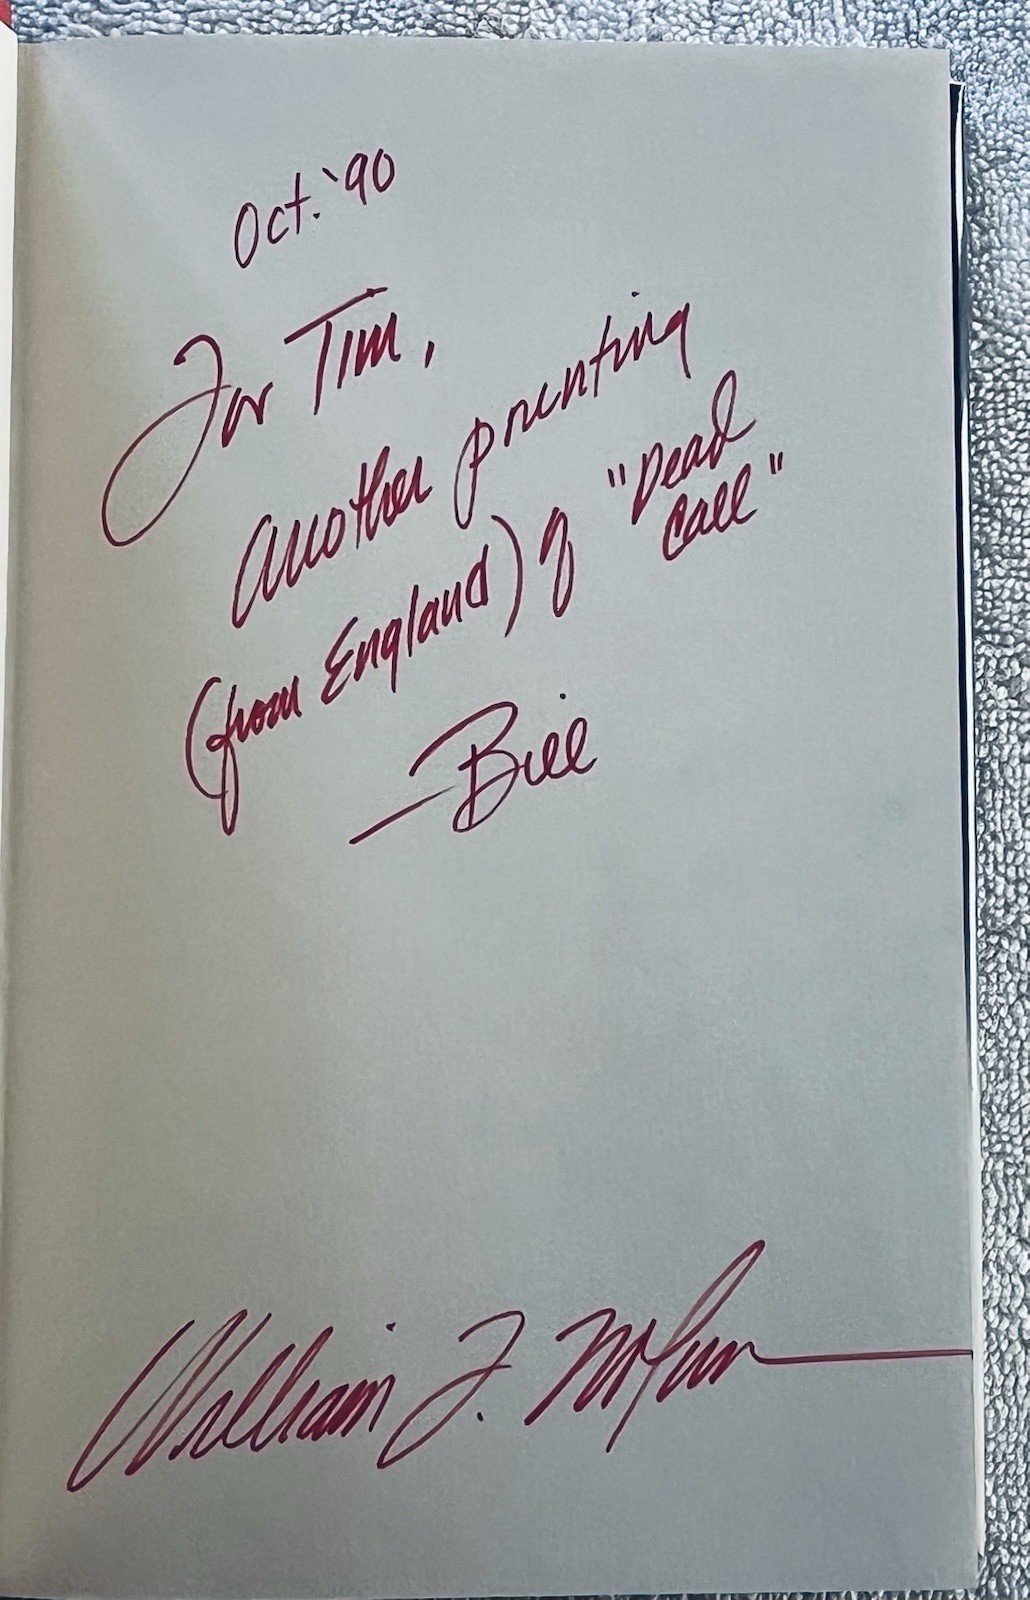 Oct. '90
For Tim,
another printing
(from England) of "Dead
Call"
— Bill
William F. Nolan